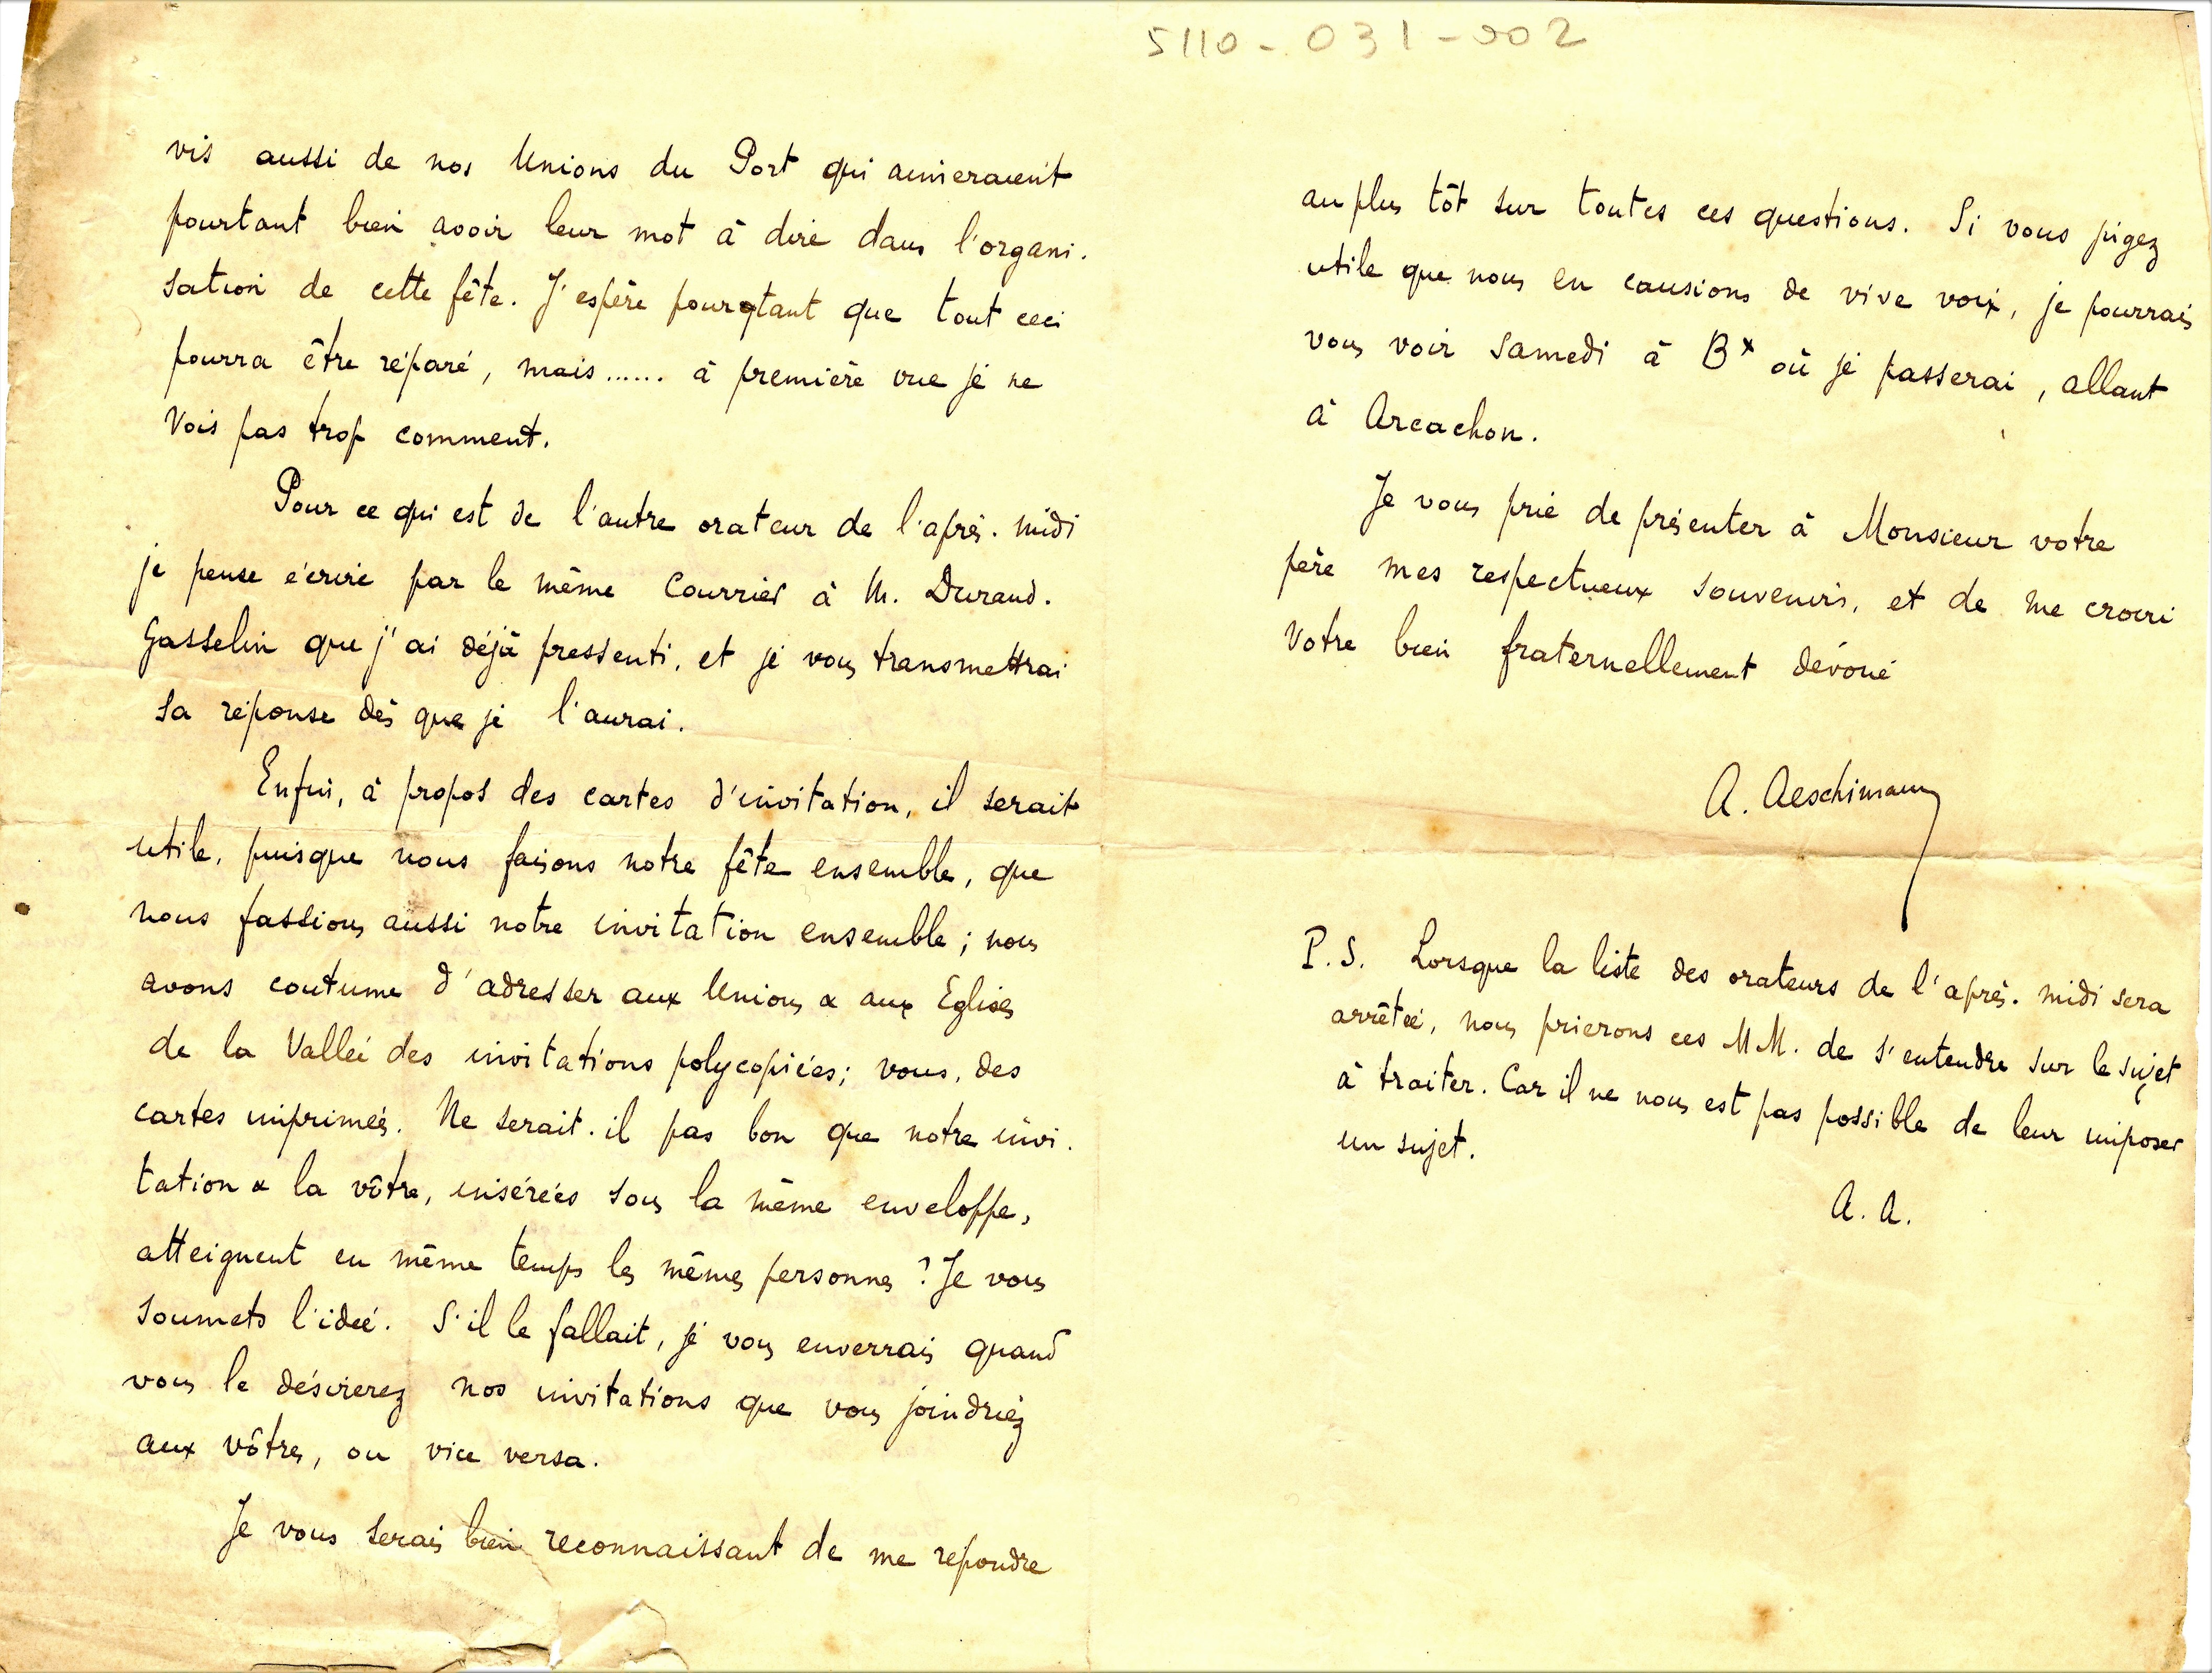 5110-031-002
vis aussi de nos Unions du Port qui aimeraient
pourtant bien avoir leur mot à dire dans l'organi-
sation de cette fête. J'espère pourtant que tout ceci
pourra être réparé, mais...... à première vue je ne
vois pas trop comment.
Pour ce qui est de l'autre orateur de l'après-midi
je pense écrire par le même courrier à M. Durand-
Gasselin que j'ai déjà pressenti, et je vous transmettrai
sa réponse dès que je l'aurai.
Enfin, à propos des cartes d'invitation, il serait
utile, puisque nous faisons notre fête ensemble, que
nous fassions aussi notre invitation ensemble ; nous
avons coutume d'adresser aux Unions & aux Eglises
de la Vallée des invitations polycopiées ; vous, des
cartes imprimées. Ne serait-il pas bon que notre invi-
tation & la vôtre, insérées sous la même enveloppe,
atteignent en même temps les mêmes personnes ? Je vous
soumets l'idée. S'il le fallait, je vous enverrais quand
vous le désirerez nos invitations que vous joindriez
aux vôtres, ou vice versa.
Je vous serais bien reconnaissant de me répondre
au plus tôt sur toutes ces questions. Si vous jugez
utile que nous en causions de vive voix, je pourrais
vous voir samedi à Bx où je passerai, allant
à Arcachon.
Je vous prie de présenter à Monsieur votre
père mes respectueux souvenirs, et de me croire
votre bien fraternellement dévoué
A. Aeschimann
P.S. Lorsque la liste des orateurs de l'après-midi sera
arrêtée, nous prierons ces MM. de s'entendre sur le sujet
à traiter. Car il ne nous est pas possible de leur imposer
un sujet.
A. A.